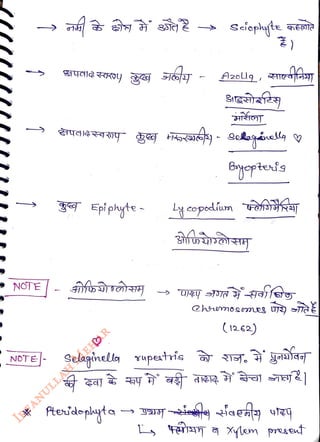 → नमी के क्षेत्र में उगते है → Sciophyte कहलाते
है)
→ अपवादस्वरूप कुछ जलीय - Azolla, साल्वीनिया
आइसोइटिस
मार्सेला
→ अपवादस्वरूप कुछ मरुस्थलीय - Selaginella ♡
Bryopteris
→ कुछ Epiphyte - Lycopodium फ्लेगिमेरिया
ओफियोग्लोसम
NOTE - ओफियोग्लोसम → पादप जगत में सर्वाधिक
Chromosomes पाये जाते है
(1262)
NOTE - Selaginella rupestris को राज. में पुनर्योवन
की दवा के रूप में बड़ी तादाद में बेचा जाता है।
* Pteridophyta → प्रथम संवहनीय पादप
↳ फ्लोयम व xylem present